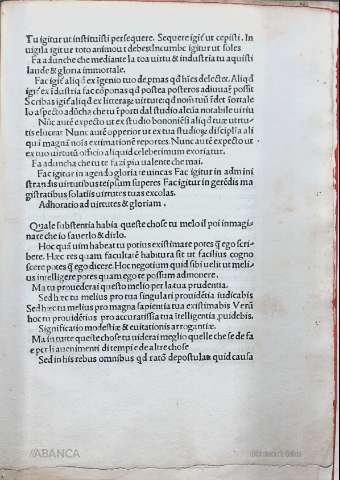 Tu igitur ut instituisti persequere. Sequere igit̃ ut cepisti. In
uigila igitur toto animo ut debes Incumbe igitur ut soles
Fa adunche che mediante la toa uirtu & industria tu aquisti
laude & gloria immortale.
Fac igit̃ aliq̃d ex igenio tuo depmas qd hĩes delectet. Aliq̃d
igit̃ ex idustria fac cõponas qd postea posteros adiuuaȓ possit
Scribas igit̃ aliq̃d ex litteraȝ uirtute: qd nom̃ tuũ
lo aspecto adũcha che tu ꝑorti dal studio alcũa notabile uirtu
Nũc aut̃ expecto ut ex studio bononiẽsi aliq̃d tuæ uirtu
tis eluceat Nunc autẽ opperior ut ex tua studioȝ disciplĩa ali
qui magna nois extimatione reportes. Nunc autẽ expecto ut
ex tuo uirtutũ officio aliquid celeberrimum exoriatur.
Fa aduncha che tu te fazi piu ualente che mai.
Fac igitur in agendo gloria te uincas Fac igitur in admini
strandis uirtutibus teipsum superes Fac igitur in gerẽdis ma
gistratibus solatiis uirtutes tuas excolas.
Adhoratio ad uirtutes & gloriam.
Quale substentia habia queste chose tu melo il poi immagi
nare che io sauerlo & dirlo.
Hoc quã uim habeat tu potius existimare potes q̃ ego scri-
bere. Hæc res quam facultatẽ habitura sit ut facilius cogno
scere potes q̃ ego dicere Hoc negotium quid sibi uelit ut meli-
us intelligere potes quam ego te possum admonere.
Ma tu prouederai questo melio per la tua prudentia.
Sed hæc tu melius pro tua singulari prouidẽtia iudicabis
Sed hæc tu melius pro magna sapientia tua existimabis Verũ
hoc tu prouidẽtius pro accuratissĩa tua ĩtelligentia ꝓuidebis.
Significatio modestiæ & euitationis arrogantiæ.
Ma in tutte queste chose tu uiderai meglio quelle che se de fa
e per li auenimenti di tempi e de altre chose
Sed in his rebus omnibus qd ratõ depostulat & quid causa
ABANCA